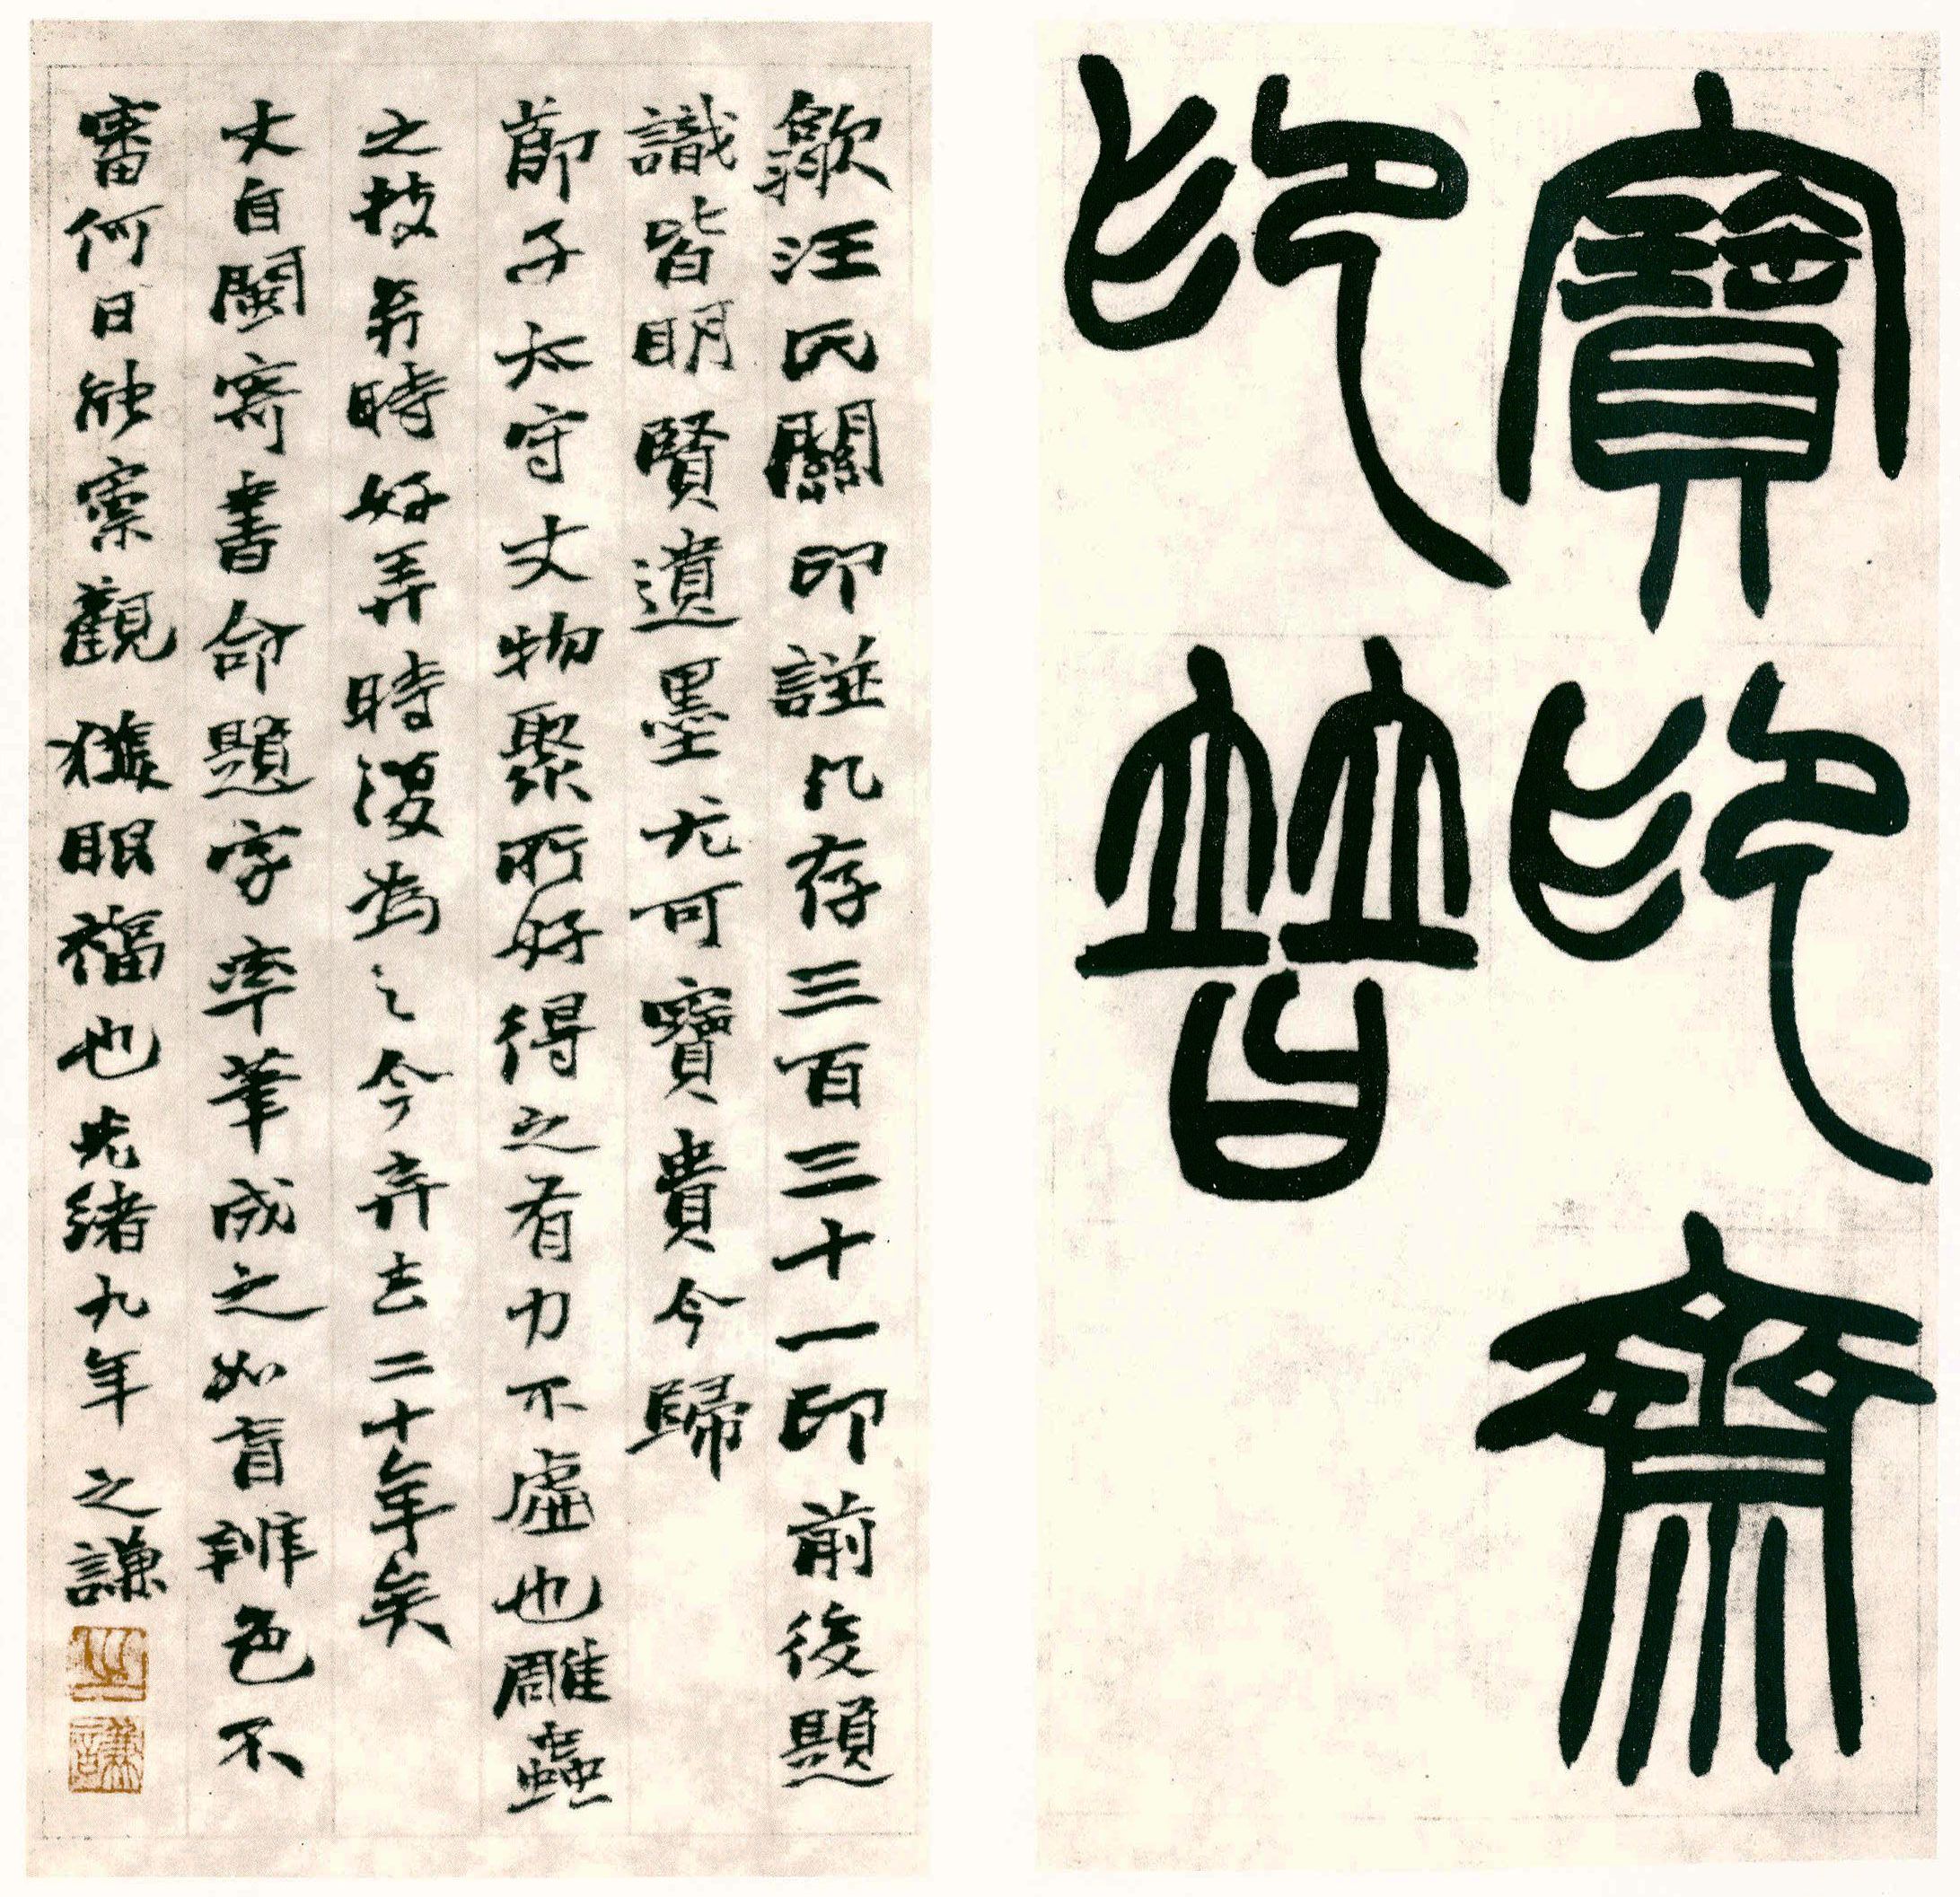 寶印齋
印普
歙汪氏關印譜凡存三百三十一印前後題
識皆明賢遺墨尤可寶貴今歸
節子太守丈物聚所好得之有力不虛也雕蟲
之技弟時好弄時復為之今弃去二十年矣
丈自閩寄書命題字率筆成之如盲辨色不
審何日能索觀獲眼福也光緒九年之謙
之
謙